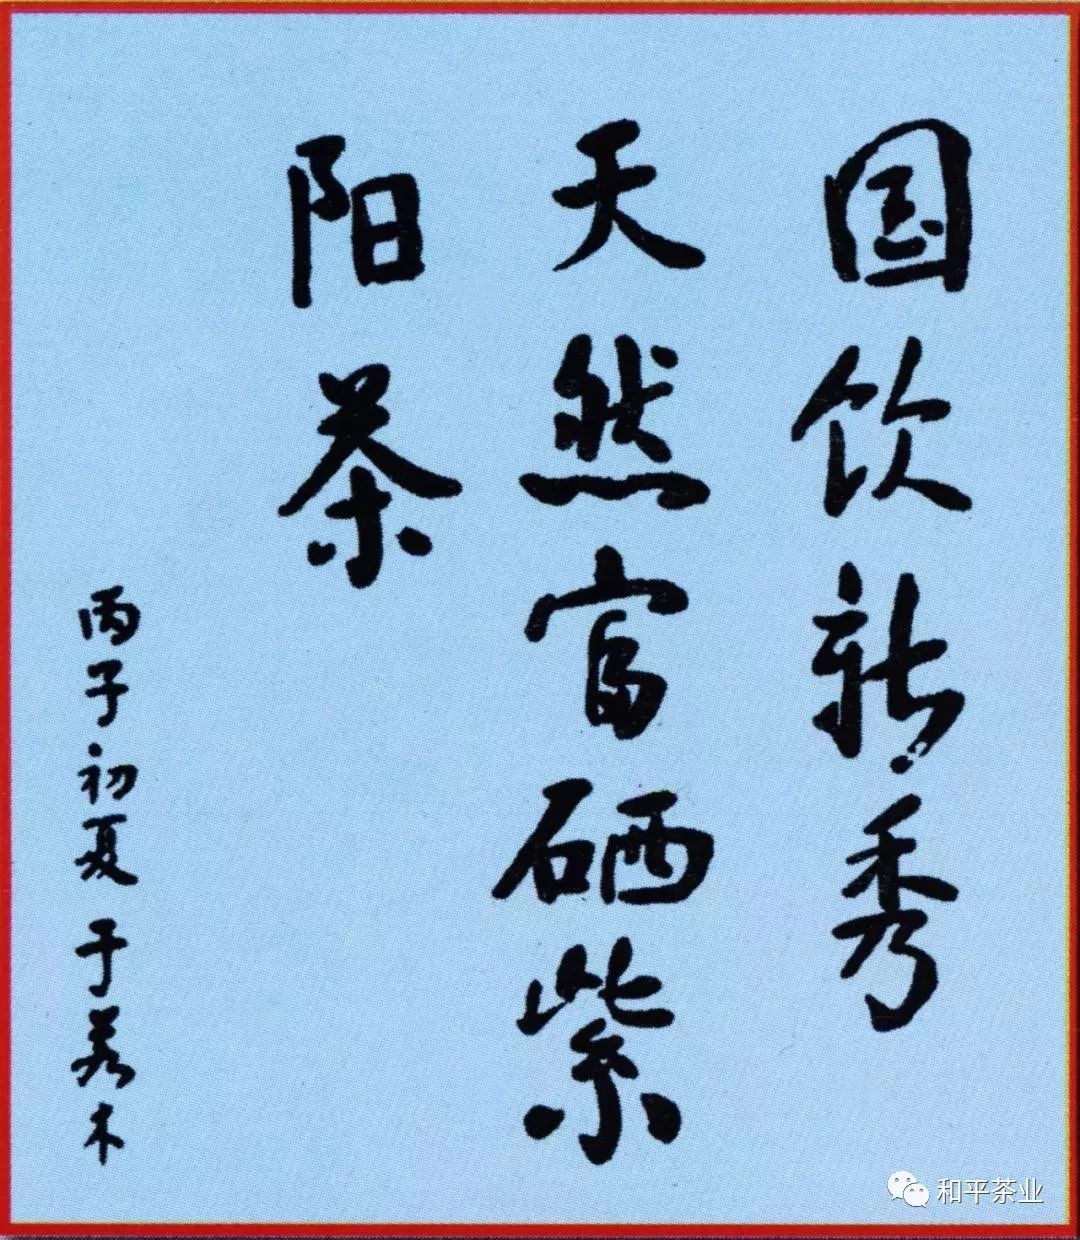 国饮新秀
天然富硒紫
阳茶
丙子初夏 于若木
和平茶业